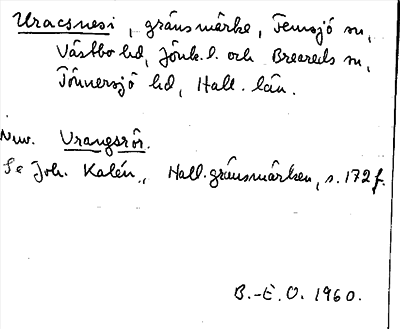 Uracsnesi, gränsmärke, Femsjö sn,
Västbo hd, Jönk. l. och Breareds sn,
Tönnersjö hd, Hall. län.
Nuv. Vrangsrör.
Se Joh. Kalén, Hall. gränsmärken, s. 172 f.
B.-E. O. 1960.